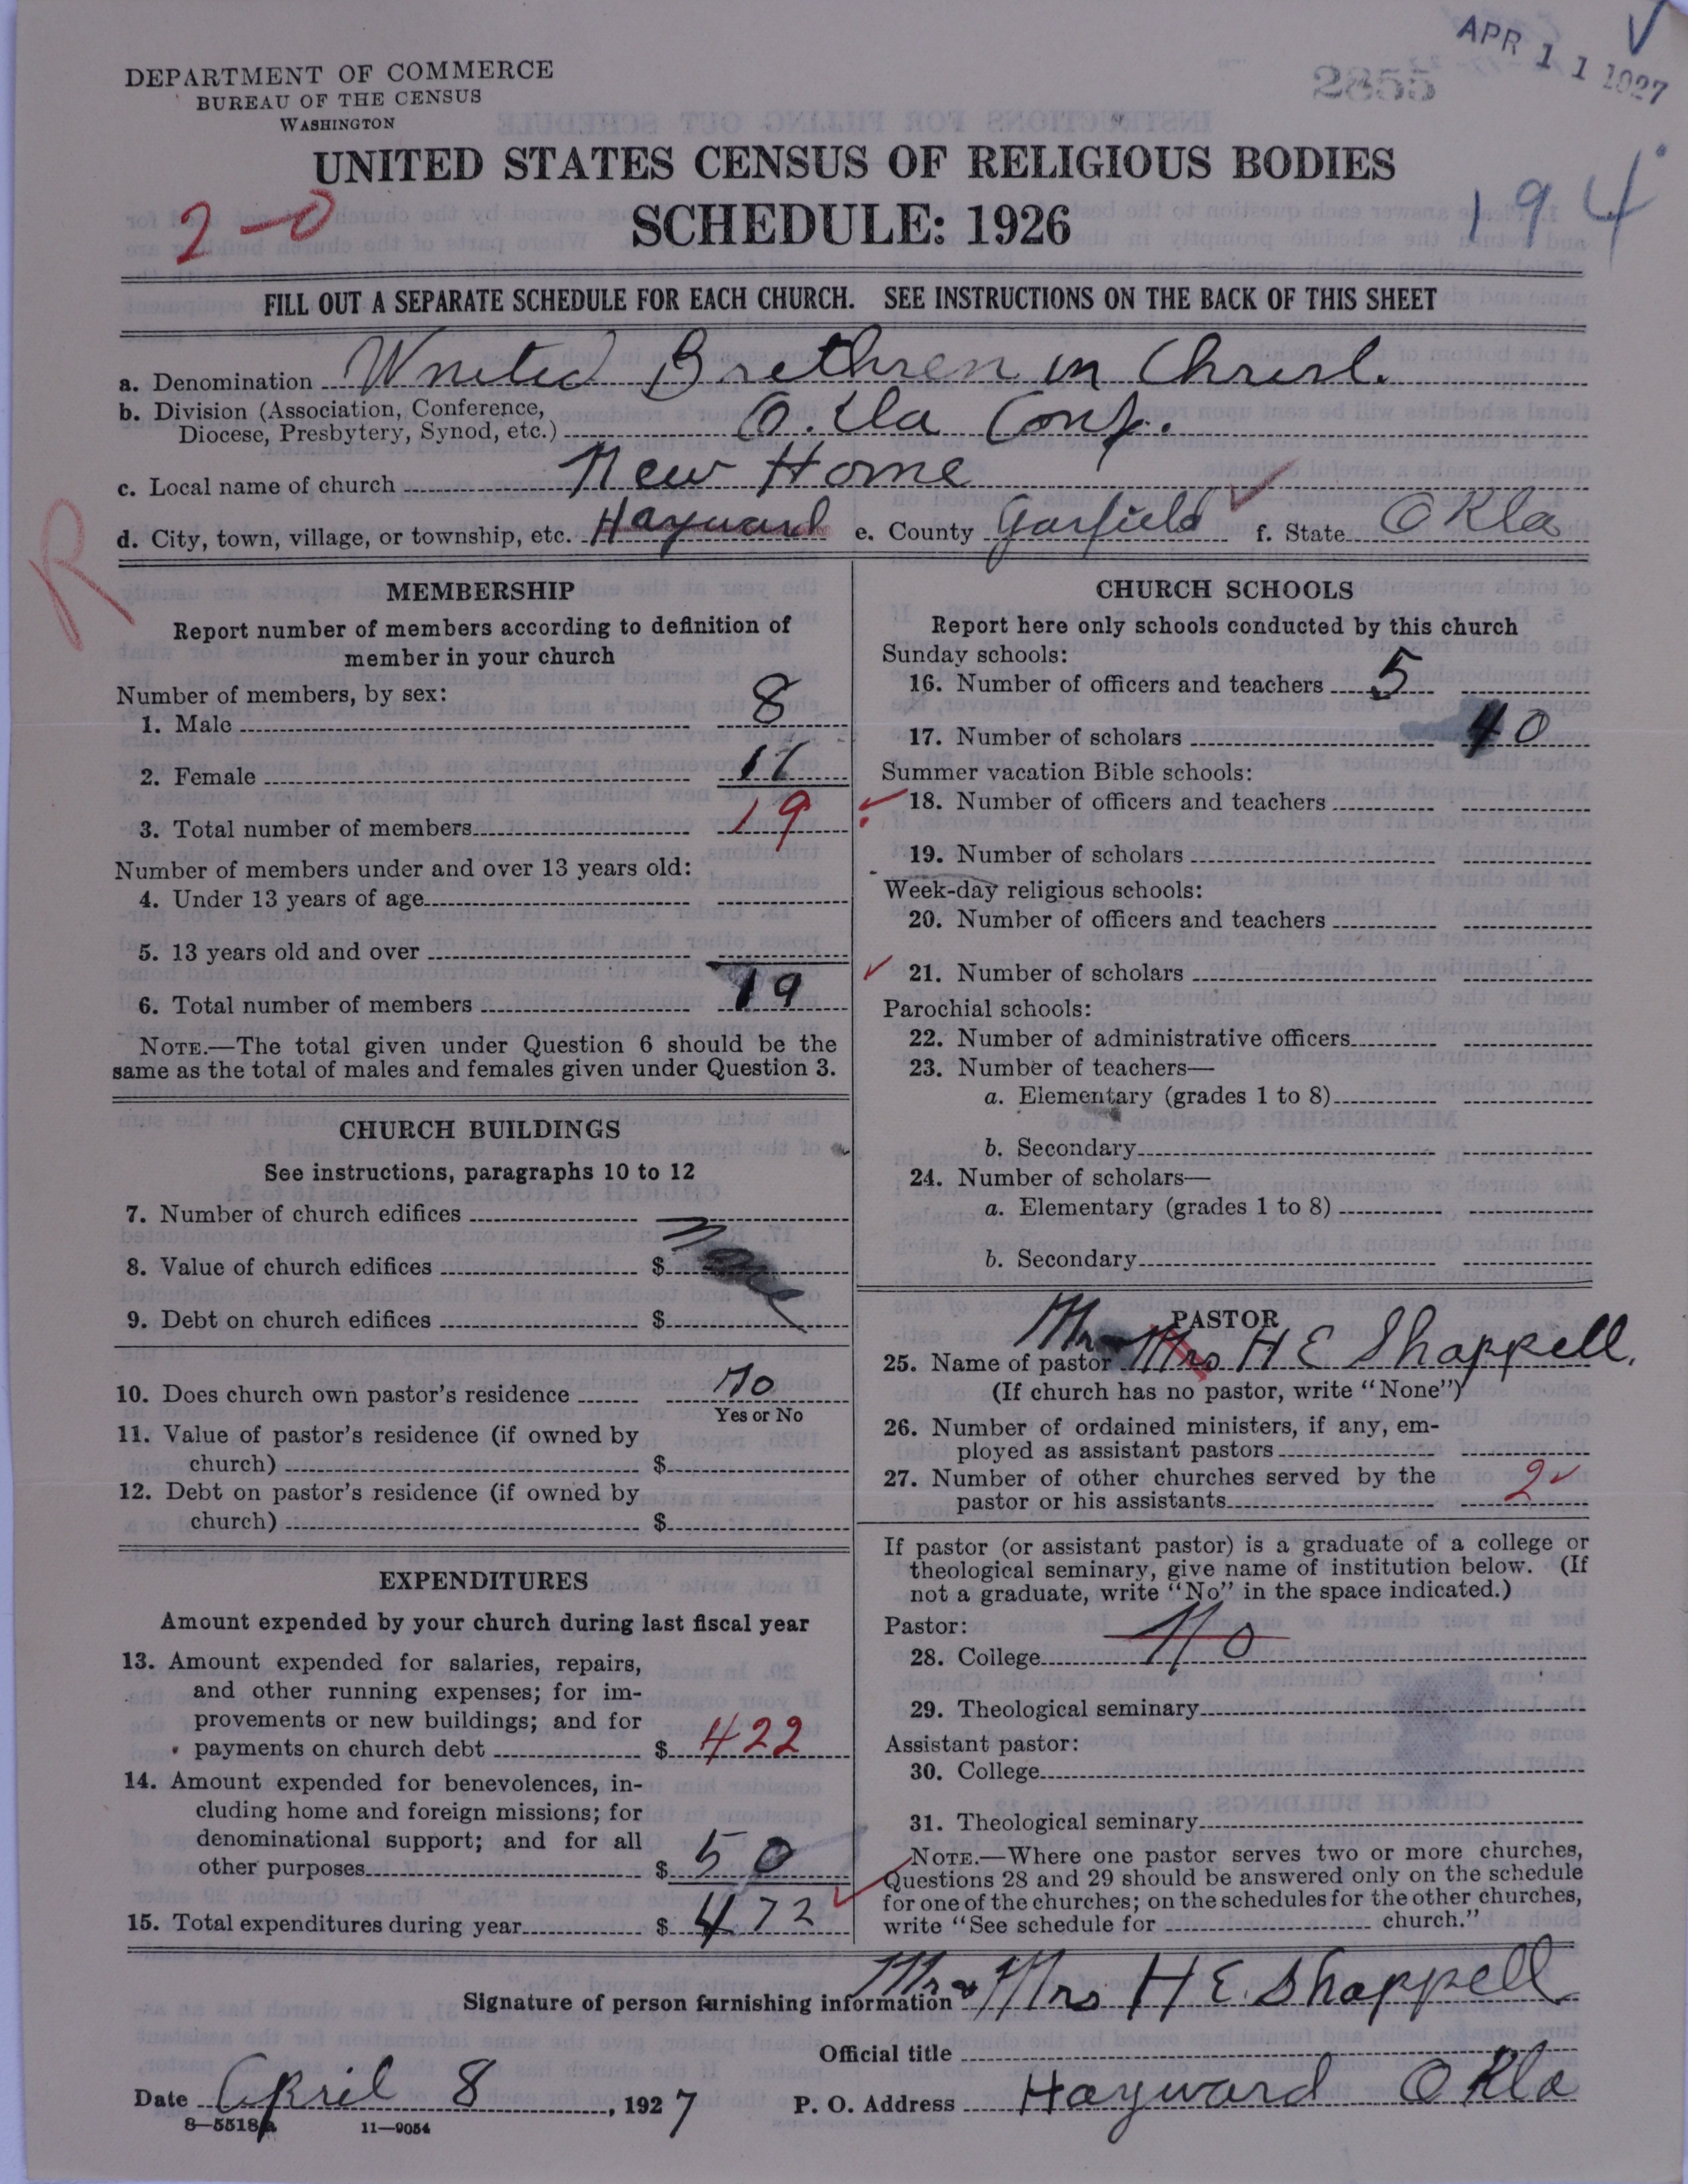 APR 11 1927
2855
DEPARTMENT OF COMMERCE
BUREAU OF THE CENSUS
WASHINGTON
UNITED STATES CENSUS OF RELIGIOUS BODIES
SCHEDULE: 1926
2-0
194
FILL OUT A SEPARATE SCHEDULE FOR EACH CHURCH. SEE INSTRUCTIONS ON THE BACK OF THIS SHEET
a. Denomination United Brethren in Christ.
b. Division (Association, Conference,
Diocese, Presbytery, Synod, etc.) O.kla Conf.
c. Local name of church New Home
d. City, town, village, or township, etc. Hayward e. County Garfield f. State Okla
R
MEMBERSHIP
Report number of members according to definition of
member in your church
Number of members, by sex:
1. Male 8
2. Female 11
3. Total number of members 19
Number of members under and over 13 years old:
4. Under 13 years of age
5. 13 years old and over
6. Total number of members 19
NOTE.—The total given under Question 6 should be the
same as the total of males and females given under Question 3.
CHURCH BUILDINGS
See instructions, paragraphs 10 to 12
7. Number of church edifices
8. Value of church edifices $
9. Debt on church edifices $
10. Does church own pastor's residence No
Yes or No
11. Value of pastor's residence (if owned by
church) $
12. Debt on pastor's residence (if owned by
church) $
EXPENDITURES
Amount expended by your church during last fiscal year
13. Amount expended for salaries, repairs,
and other running expenses; for im-
provements or new buildings; and for
payments on church debt $ 422
14. Amount expended for benevolences, in-
cluding home and foreign missions; for
denominational support; and for all
other purposes $ 50
15. Total expenditures during year $ 472
CHURCH SCHOOLS
Report here only schools conducted by this church
Sunday schools:
16. Number of officers and teachers 5
17. Number of scholars 40
Summer vacation Bible schools:
18. Number of officers and teachers
19. Number of scholars
Week-day religious schools:
20. Number of officers and teachers
21. Number of scholars
Parochial schools:
22. Number of administrative officers
23. Number of teachers—
a. Elementary (grades 1 to 8)
b. Secondary
24. Number of scholars—
a. Elementary (grades 1 to 8)
b. Secondary
PASTOR
25. Name of pastor Mr Mrs H E Shappell.
(If church has no pastor, write "None")
26. Number of ordained ministers, if any, em-
ployed as assistant pastors
27. Number of other churches served by the
pastor or his assistants 2
If pastor (or assistant pastor) is a graduate of a college or
theological seminary, give name of institution below. (If
not a graduate, write "No" in the space indicated.)
Pastor:
28. College No
29. Theological seminary
Assistant pastor:
30. College
31. Theological seminary
NOTE.—Where one pastor serves two or more churches,
Questions 28 and 29 should be answered only on the schedule
for one of the churches; on the schedules for the other churches,
write "See schedule for church."
Signature of person furnishing information Mr & Mrs H E. Shappell
Official title
Date April 8, 1927 P. O. Address Hayward Okla
8—5518a 11—9054